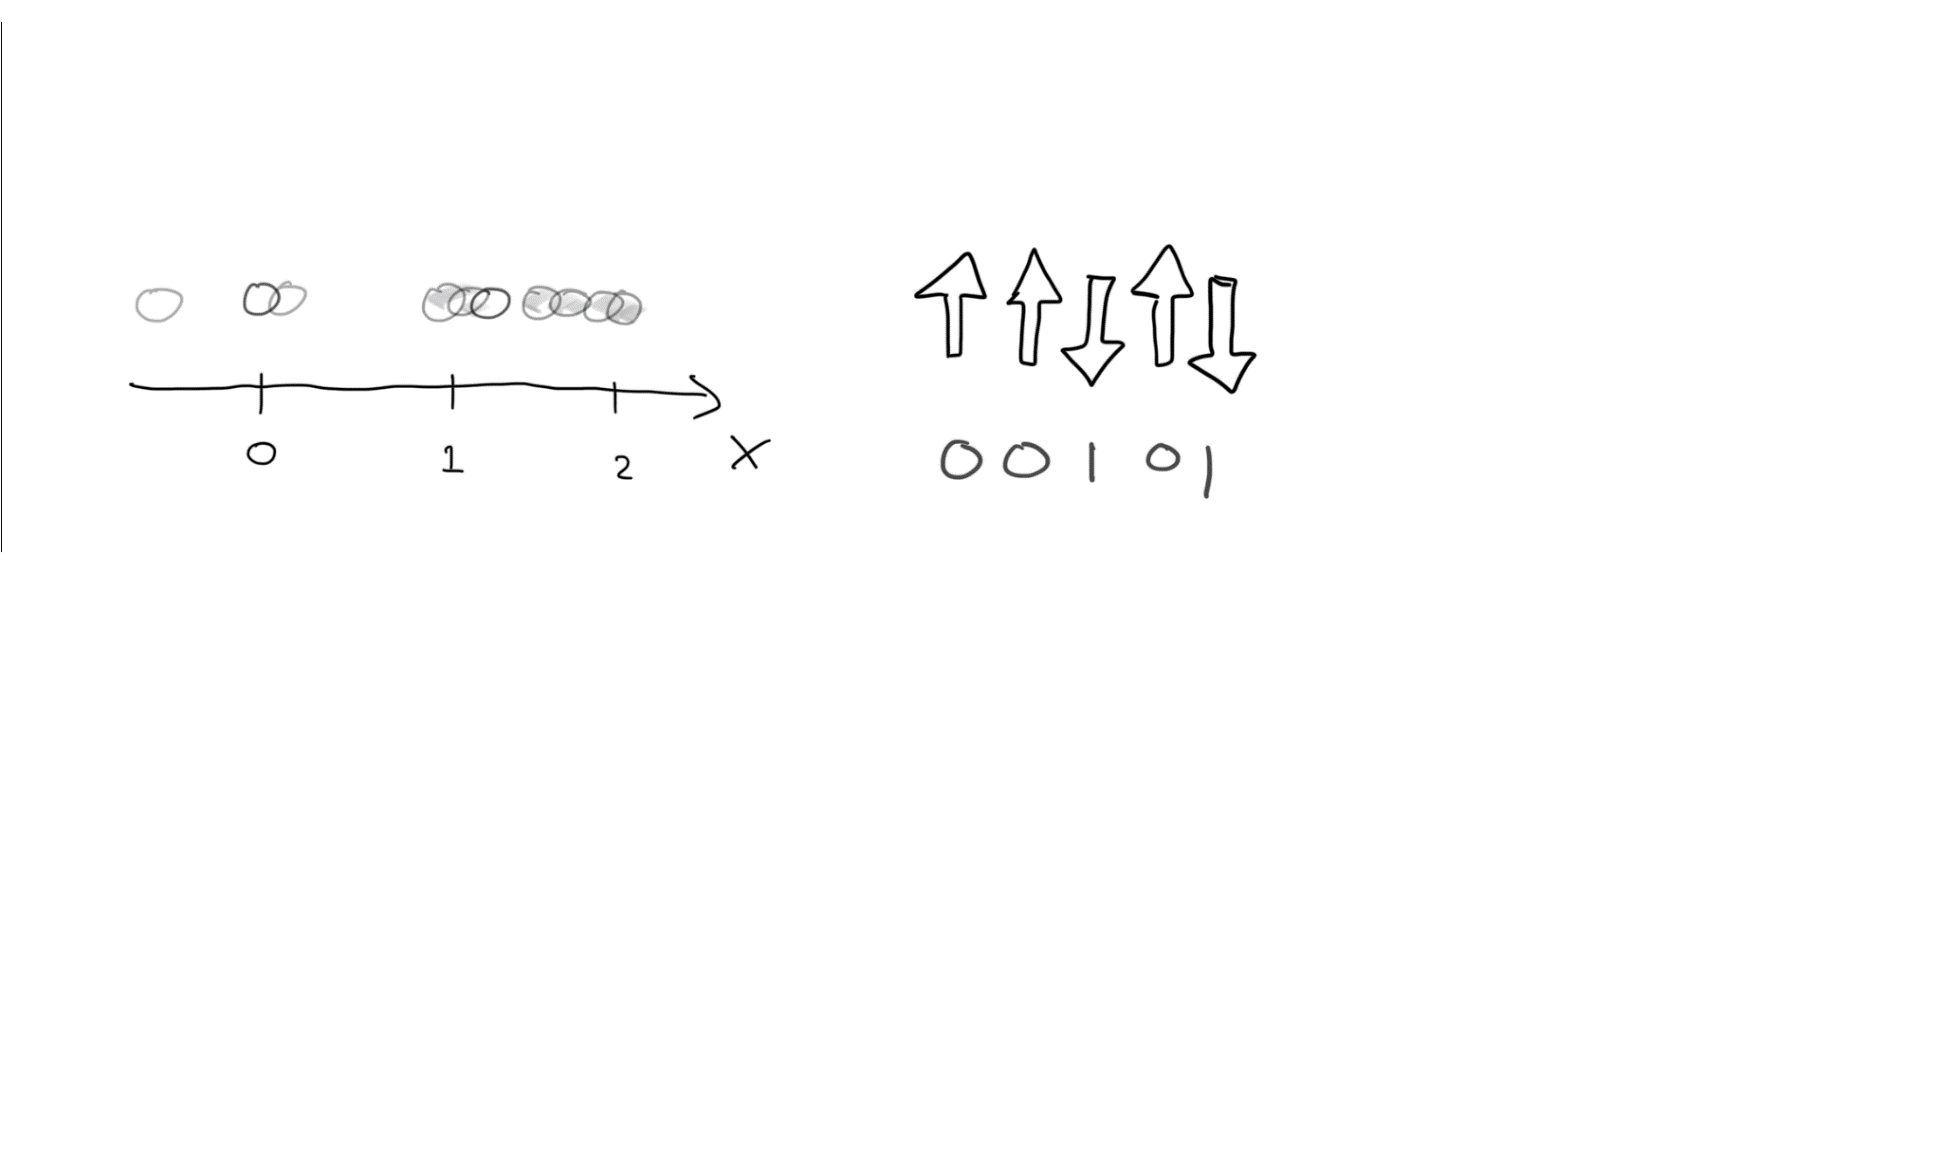 0 1 2 X
0 0 1 0 1